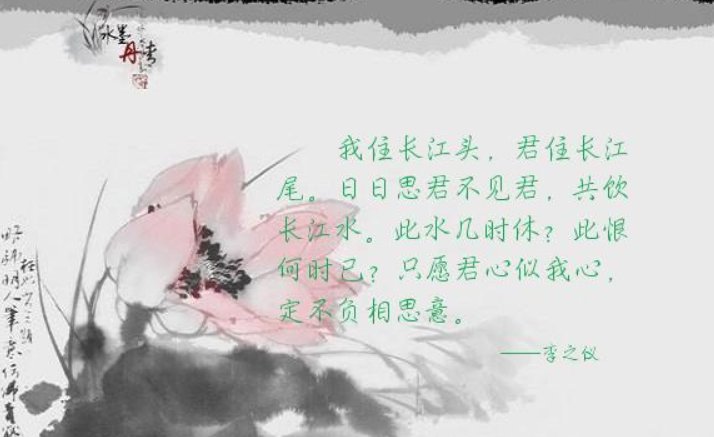 水墨
丹青
我住长江头，君住长江
尾。日日思君不见君，共饮
长江水。此水几时休？此恨
何时已？只愿君心似我心，
定不负相思意。
——李之仪